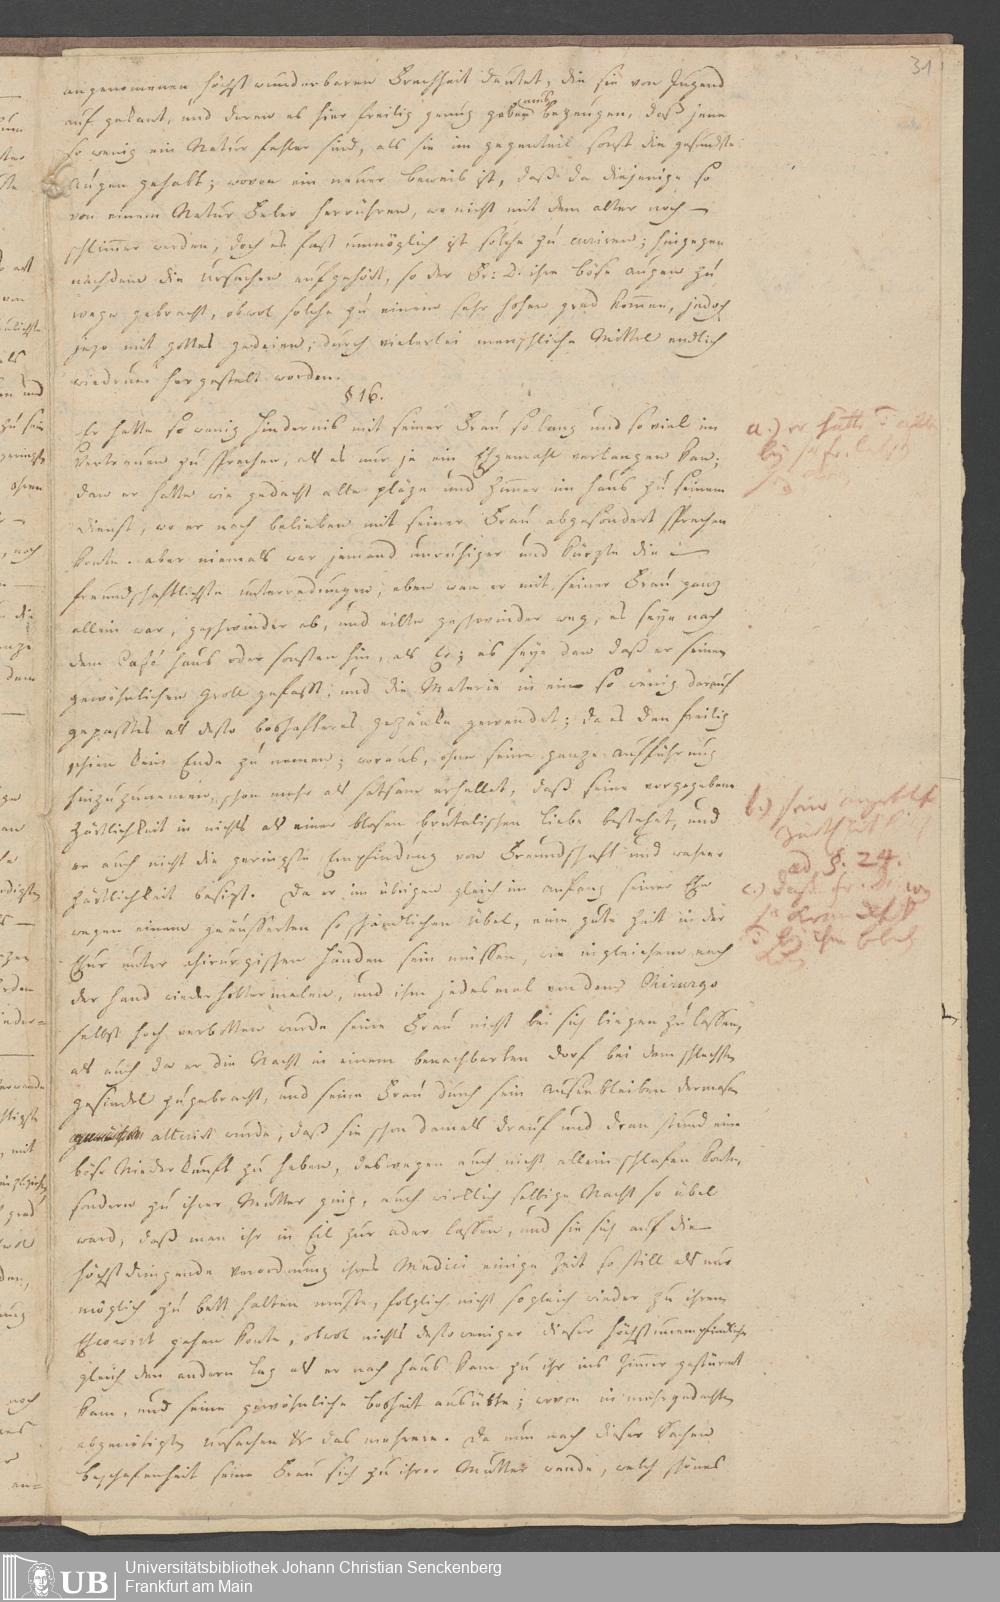 31
angenomenen höchst wunderbaren Krankheit deutet, die sie von Jugend
auf gekant, und deren es hier freilig genug geben, bezeugen, daß jene
so wenig ein Natur fehler sind, als sie im gegenteil sonst die gesundste
Augen gehabt; wovon ein neuer beweis ist, daß da diejenige so
von einem Natur Feler herrühren, wo nicht mit dem alter noch
schlimmer werden, doch es fast unmöglich ist solche zu curiren; hingegen
nachdem die Ursachen aufgehört, so der Fr: D. ihre böse augen zu
wege gebracht, obwol solche zu einem sehr hohen grad komen, jedoch
jezo mit gottes gedeien, durch vielerlei menschliche Mittel endlich
wiedrum hergestelt worden.
§ 16.
Er hatte so wenig Hindernis mit seiner Frau so lang und so viel im
Vertrauen zu sprechen, als es nur je ein Ehgemahl verlangen kan;
dan er hatte wie gedacht alle pläze und Zimer im haus zu seinem
dienst, wo er nach belieben mit seiner Frau abgesondert sprechen
konte. aber niemals war jemand unruhiger und kürzte die
freundschaftlichste unterredungen, eben wan er mit seiner Frau ganz
allein war, geschwinder ab, und eilte geschwinder weg, es seye nach
dem Café haus oder sonsten hin, als Er; es seye dan daß er seinen
gewöhnlichen Groll gefasst, und die Materie in ein so wenig darauf
gepasstes als desto boshafteres gezänke gewendet; da es dan freilig
schien kein Ende zu nemen; woraus, ohne seine ganze aufführung
hinzuzunemen, schon mehr als satsam erhellet, daß seine vorgegebene
Zärtlichkeit in nichts als einer blosen brutalischen Liebe bestehet, und
er auch nicht die geringste Empfindung von Freundschaft und wahrer
Zärtlichkeit besizt. Da er im übrigen gleich im anfang seiner Ehe
wegen einem geäusserten so schändlichen übel, eine gute Zeit in der
Chur unter chirurgischen Händen sein müssen, wie ingleichem nach
der hand wiederholtermalen, und ihm jedesmal von dem Chirurgo
selbst hoch verbotten wurde seine Frau nicht bei sich liegen zu lassen,
als auch da er die Nacht in einem benachbarten dorf bei dem schlechsten
gesindel zugebracht, und seine Frau durch sein Ausenbleiben dermasen
alterirt wurde, daß sie schon damals drauf und dran stund eine
böse Niederkunft zu haben, deswegen auch nicht allein schlafen konte,
sondern zu ihrer Mutter ging, auch wirklich selbige Nacht so übel
ward, daß man ihr in Eil zur ader lassen, und sie sich auf die
höchst dringende verordnung ihres Medici einige Zeit so still als nur
möglich zu bett halten muste, folglich nicht sogleich wieder zu ihrem
Ehewirt gehen konte, obwol nichts desto weniger dieser höchst unempfindliche
gleich den andern tag als er nach haus kam zu ihr ins Zimer gestürmt
kam, und seine gewöhnliche bosheit ausübte; wovon in mehrgedachten
abgenötigten ursachen das mehrere. Da nun nach dieser Sachen
beschafenheit seine Frau sich zu ihrer Mutter wende, welch schönes
a.) er hatte
b.) seine
ad §. 24.
c.) daß Fr. D.
Universitätsbibliothek Johann Christian Senckenberg
Frankfurt am Main
UB